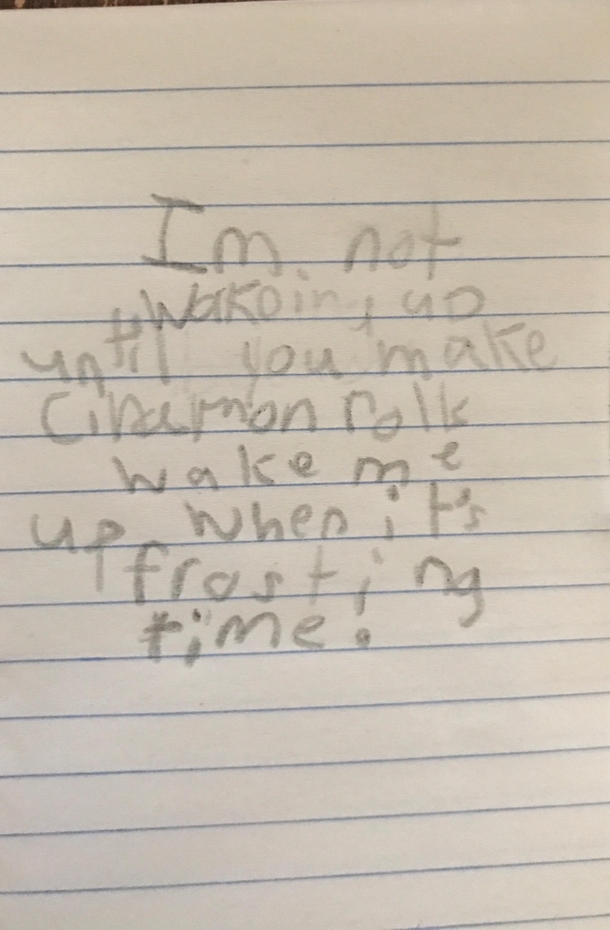 Im not
wakoing up
until you make
Cinamon rolls
wake me
up when it's
frosting
time.